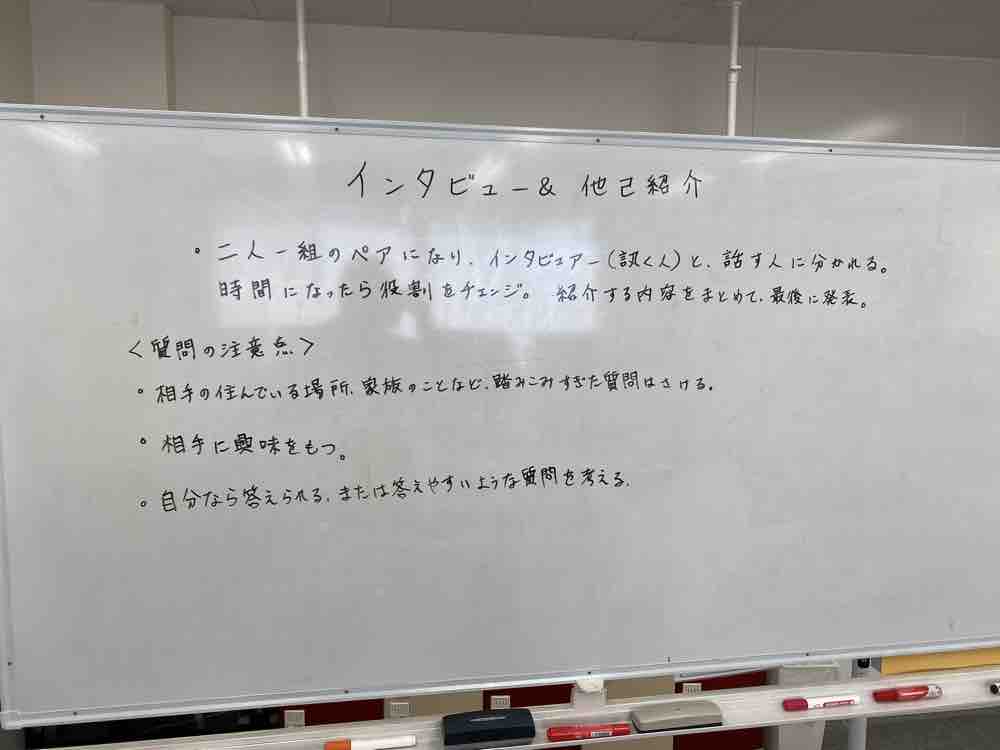 インタビュー& 他己紹介
・二人一組のペアになり、インタビュアー(訊く人)と、話す人に分かれる。
時間になったら役割をチェンジ。 紹介する内容をまとめて、最後に発表。
<質問の注意点>
・相手の住んでいる場所、家族のことなど、踏みこみすぎた質問はさける。
・相手に興味をもつ。
・自分なら答えられる、または答えやすいような質問を考える。